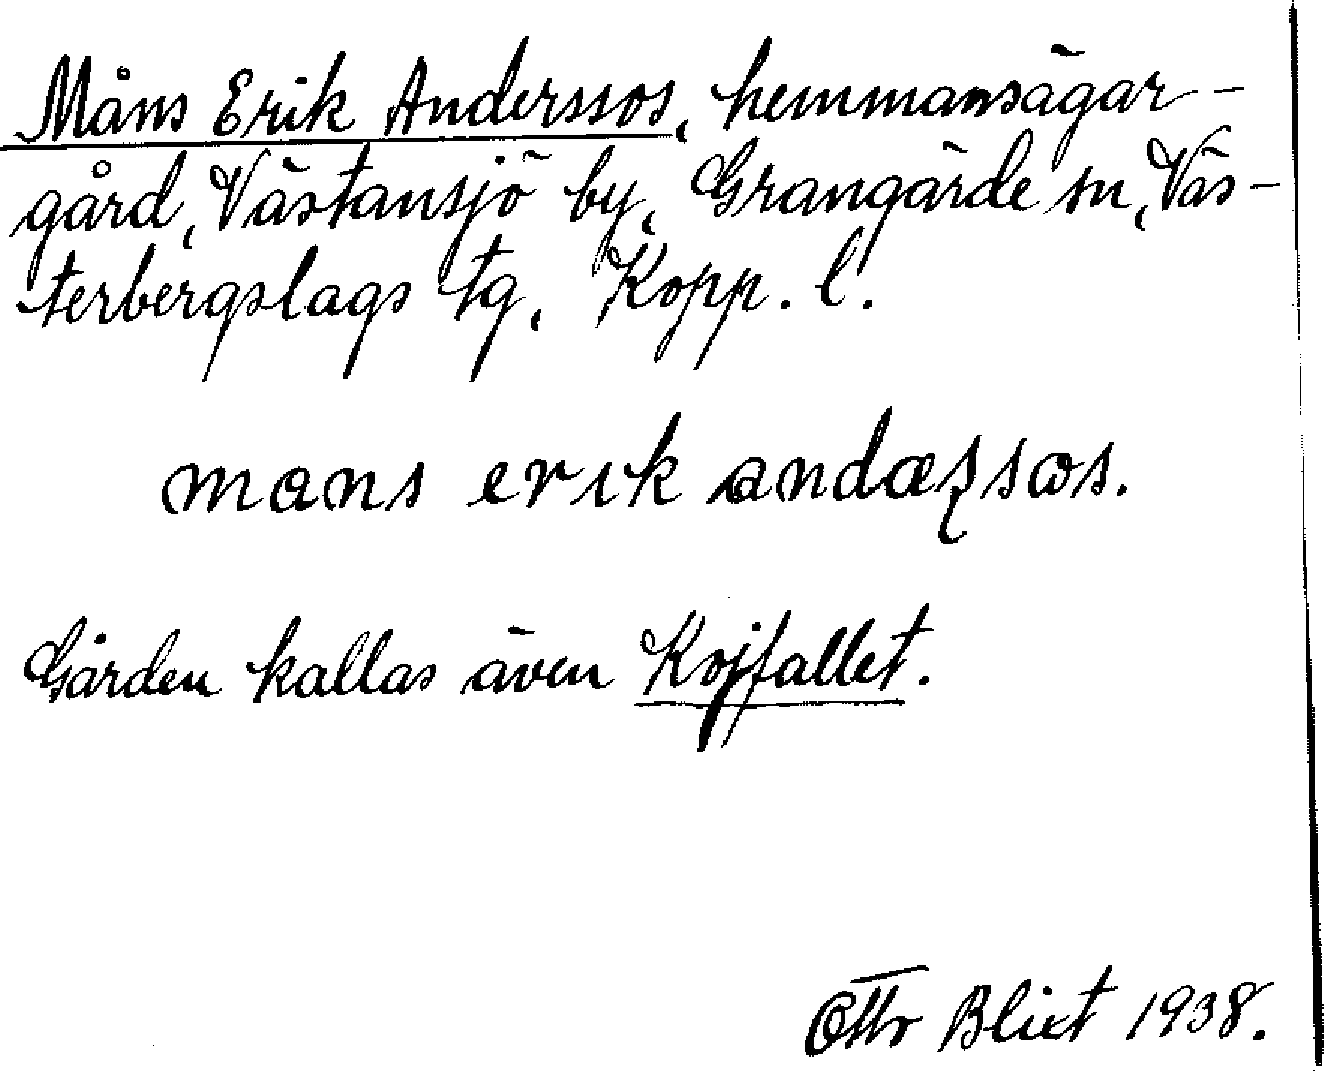 Måns Erik Anderssos, hemmansägar-
gård, Västansjö by, Grangärde sn, Väs-
terbergslags tg, Kopp. l.
mans erik andæʂsɷs.
Gården kallas även Kojfallet.
Otto Blixt 1938.